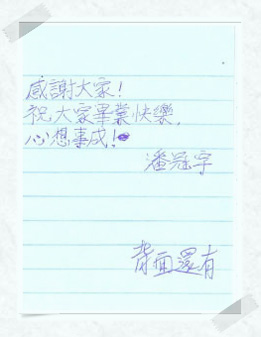 感謝大家!
祝大家畢業快樂,
心想事成!
潘冠宇
背面還有